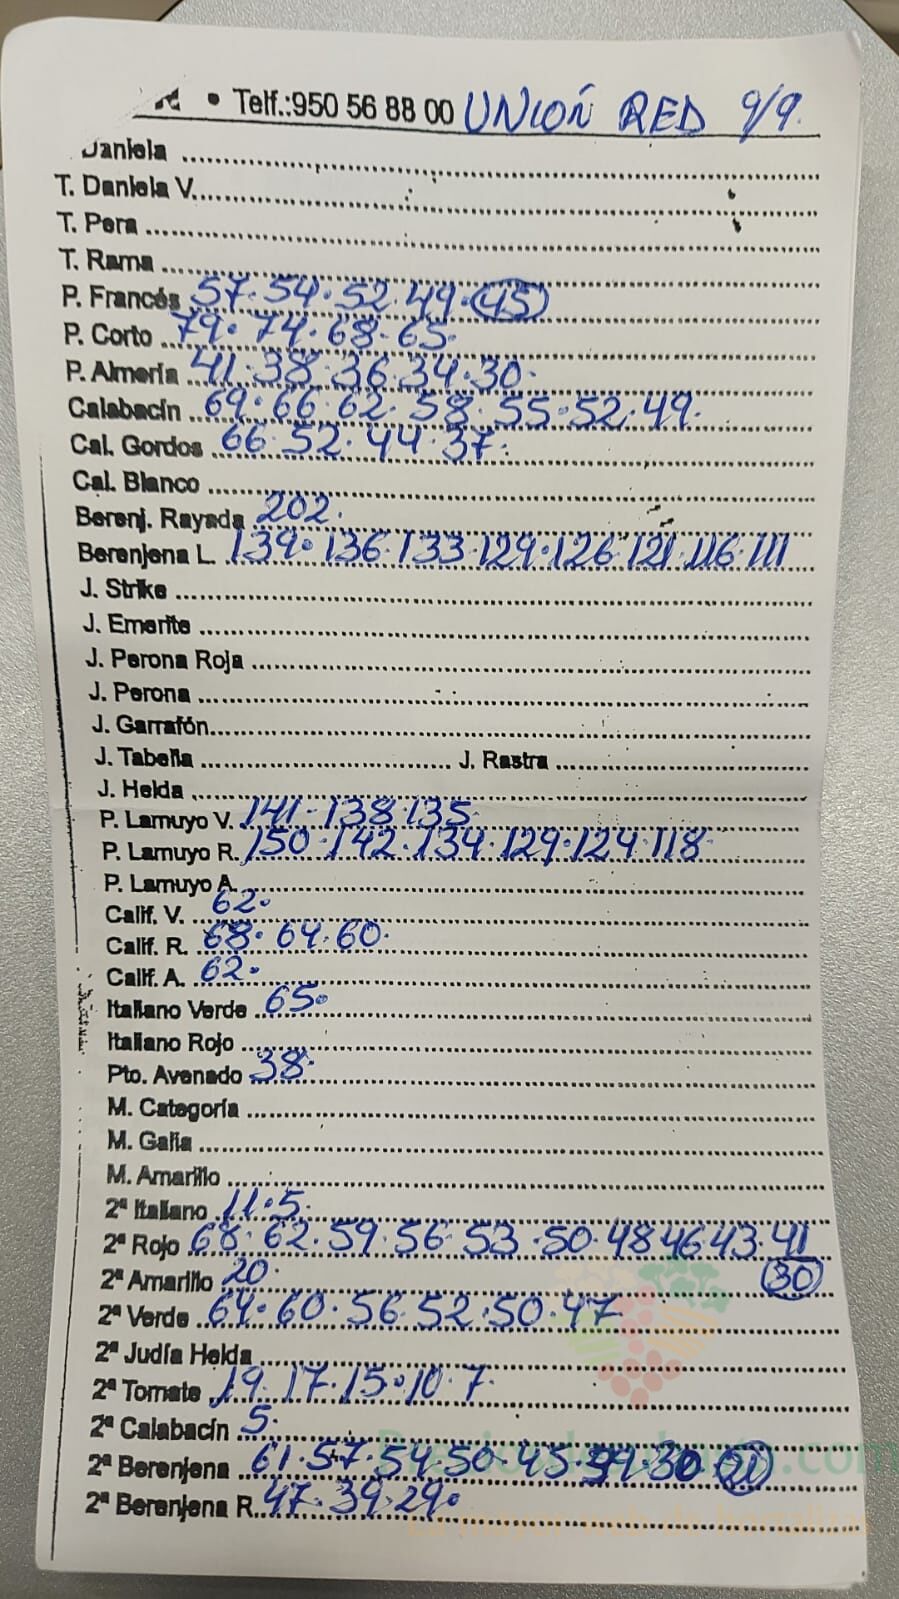 • Telf.:950 56 88 00 UNIOÑ RED 9/9.
Daniela
T. Daniela V.
T. Pera
T. Rama
P. Francés 57. 54. 52. 49. 45
P. Corto 79. 74. 68. 65.
P. Almería 41. 38. 36. 34. 30.
Calabacín 69. 66. 62. 58. 55. 52. 49.
Cal. Gordos 66. 52. 44. 37.
Cal. Blanco
Berenj. Rayada 202.
Berenjena L. 139. 136. 133. 129. 126. 121. 116. 111
J. Strike
J. Emerite
J. Perona Roja
J. Perona
J. Garrafón
J. Tabella J. Rastra
J. Helda
P. Lamuyo V. 141. 138. 135.
P. Lamuyo R. 150. 142. 134. 129. 124. 118.
P. Lamuyo A.
Calif. V. 62.
Calif. R. 68. 64. 60.
Calif. A. 62.
Italiano Verde 65.
Italiano Rojo
Pto. Avenado 38.
M. Categoría
M. Galia
M. Amarillo
2ª Italiano 11. 5.
2ª Rojo 68. 62. 59. 56. 53. 50. 48 46. 43. 41
2ª Amarillo 20. 30
2ª Verde 64. 60. 56. 52. 50. 47.
2ª Judía Helda
2ª Tomate 19. 17. 15. 10. 7.
2ª Calabacín 5.
2ª Berenjena 61. 57. 54. 50. 45 39. 30. 21
2ª Berenjena R. 47. 39. 29.
La mayor web de hortalizas